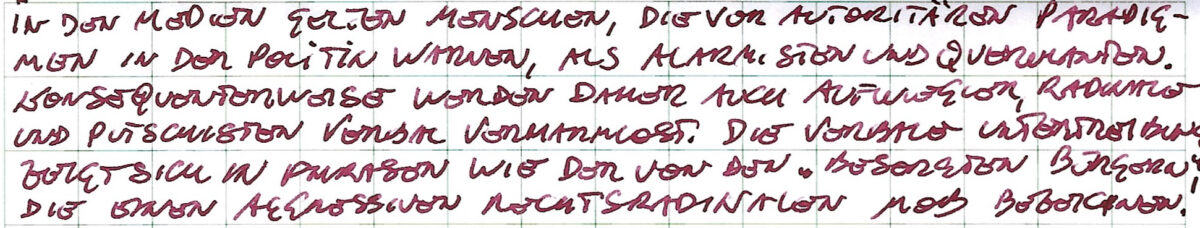 IN DEN MEDIEN GELTEN MENSCHEN, DIE VOR AUTORITÄREN PARADIG-
MEN IN DER POLITIK WARNEN, ALS ALARMISTEN UND QUERULANTEN.
KONSEQUENTERWEISE WERDEN DAHER AUCH AUFWIEGLER, RADIKALE
UND PUTSCHISTEN VERBAL VERHARMLOST. DIE VERBALE UNTERTREIBUNG
ZEIGT SICH IN PHRASEN WIE DER VON DEN „BESORGTEN BÜRGERN",
DIE EINEN AGGRESSIVEN RECHTSRADIKALEN MOB BEZEICHNEN.